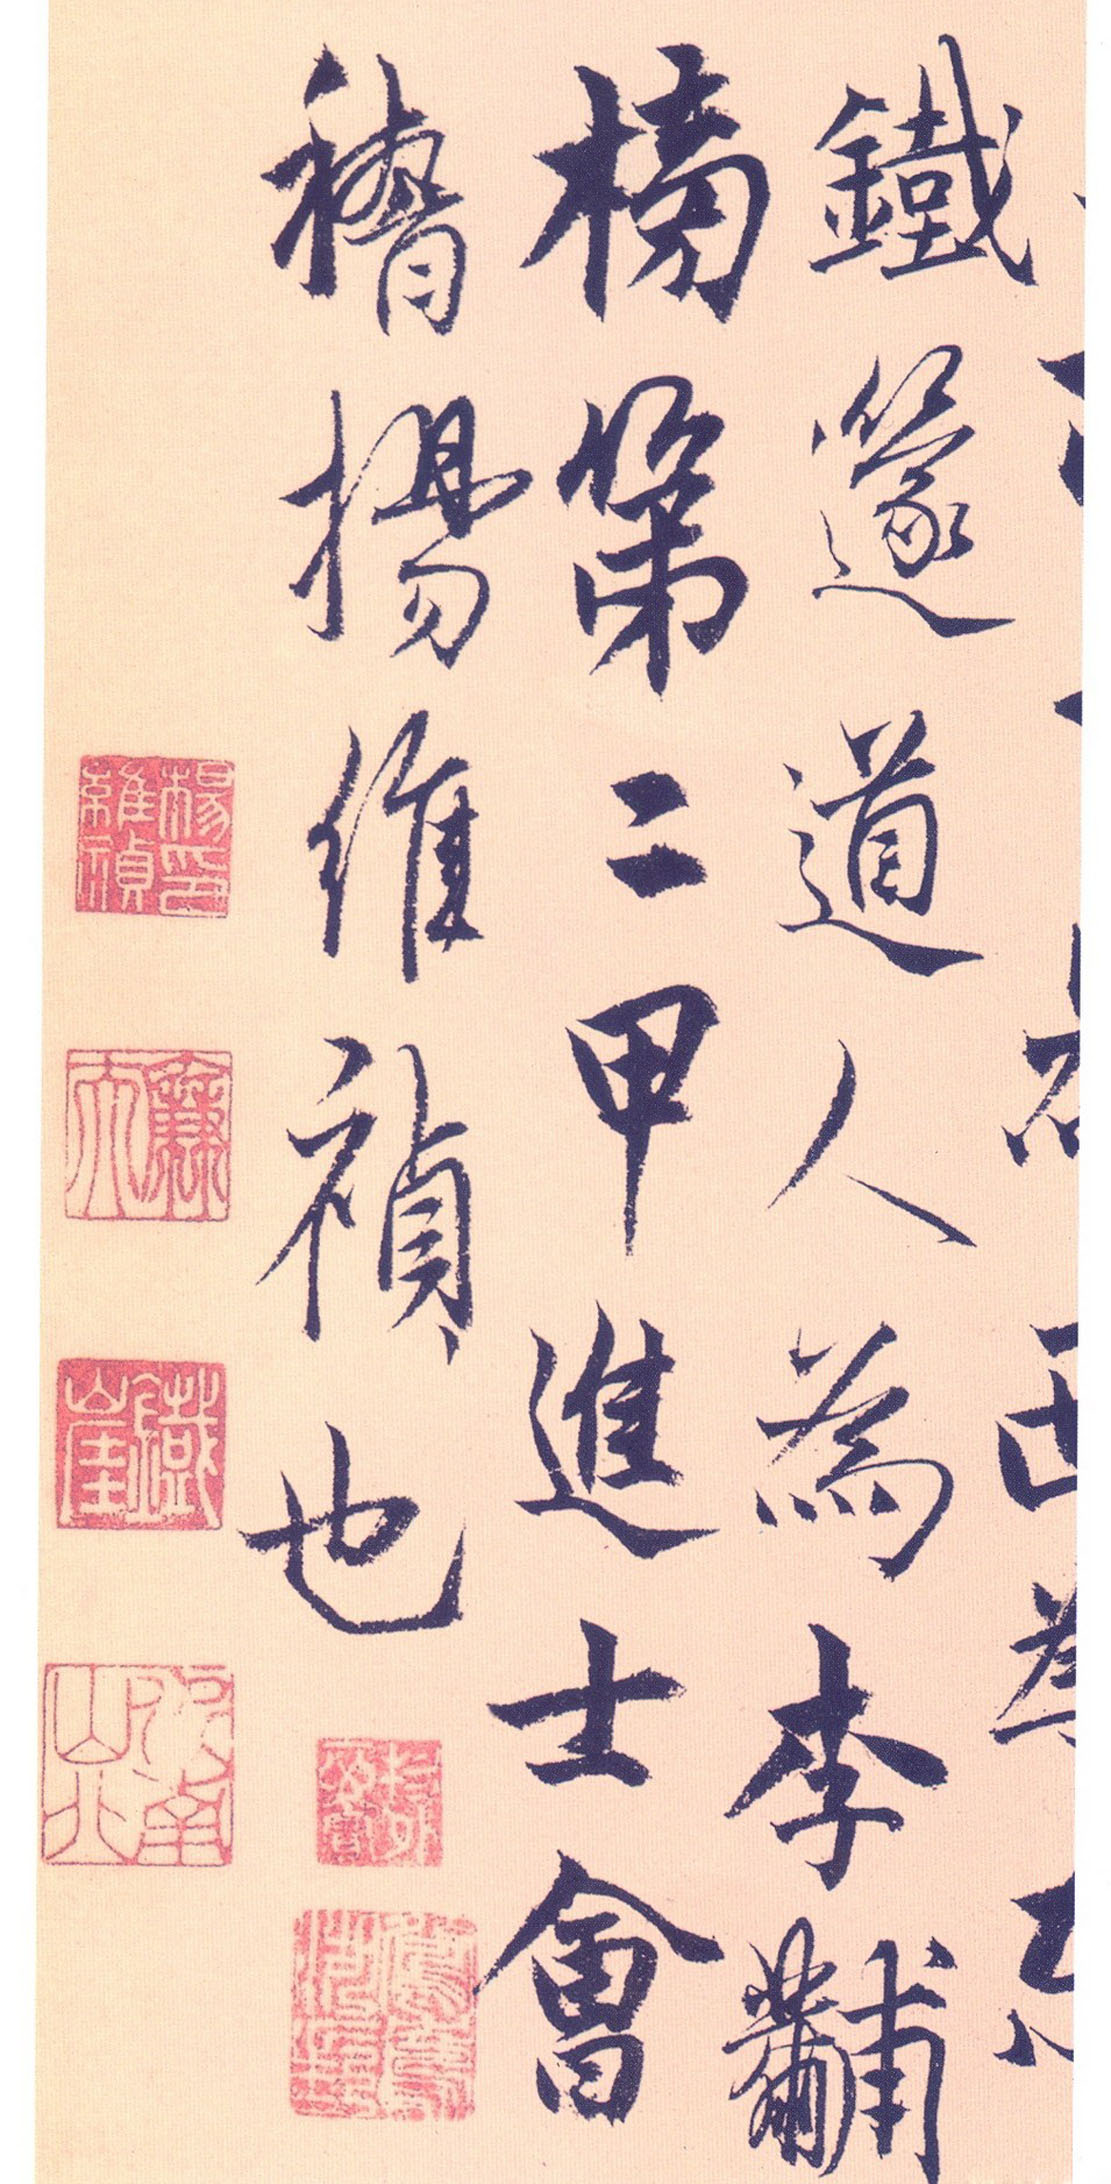 鐵篴道人為李黼
榜第二甲進士會
稽揚維禎也
楊印
維禎
廉夫
鐵崖